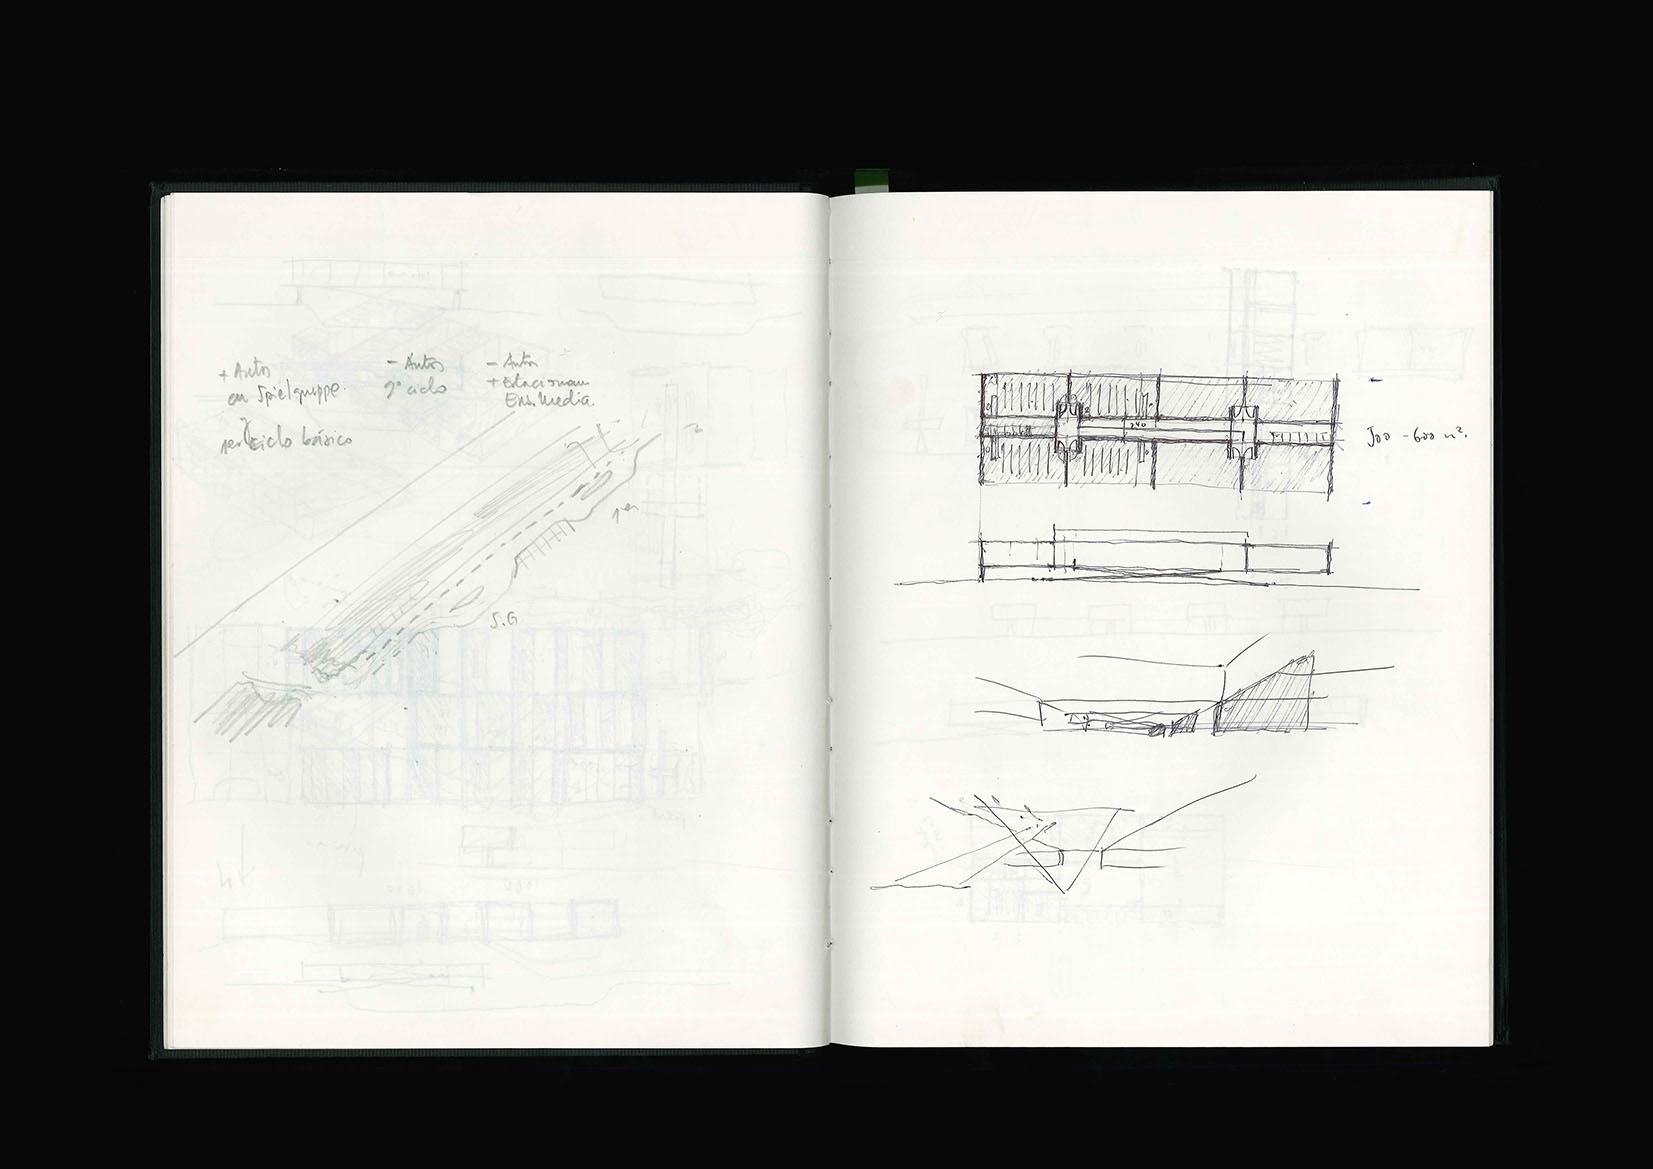 + Autos
en Spielgruppe
1er Ciclo básico
- Autos
2º ciclo
- Autos
+ Estacionam
Ens. Media.
S.G
240
500 - 600 m².